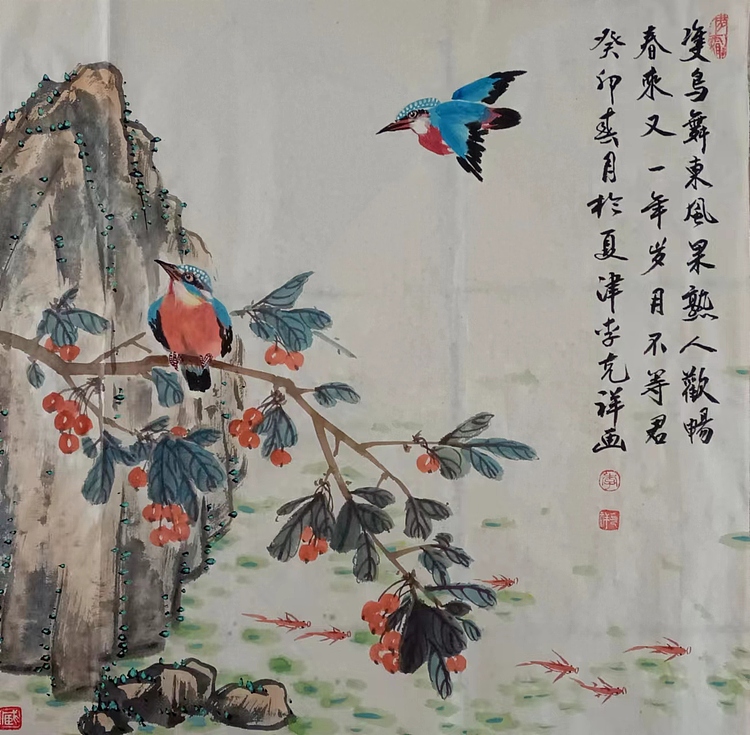 雙鸟舞東風果熟人歡暢
春來又一年岁月不等君
癸卯春月於夏津李克祥画
藏